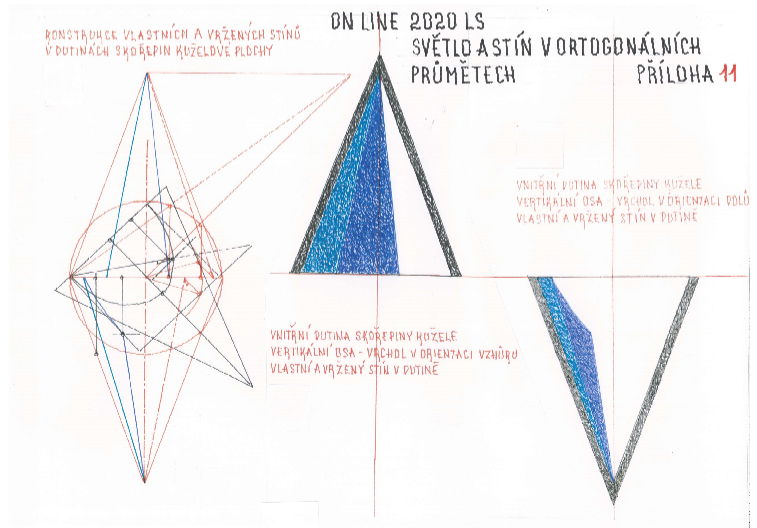 KONSTRUKCE VLASTNÍCH A VRŽENÝCH STÍNŮ
V DUTINÁCH SKOŘEPIN KUŽELOVÉ PLOCHY
ON LINE 2020 LS
SVĚTLO A STÍN V ORTOGONÁLNÍCH
PRŮMĚTECH PŘÍLOHA 11
VNITŘNÍ DUTINA SKOŘEPINY KUŽELE
VERTIKÁLNÍ OSA - VRCHOL V ORIENTACI DOLŮ
VLASTNÍ A VRŽENÝ STÍN V DUTINĚ
VNITŘNÍ DUTINA SKOŘEPINY KUŽELE
VERTIKÁLNÍ OSA - VRCHOL V ORIENTACI VZHŮRU
VLASTNÍ A VRŽENÝ STÍN V DUTINĚ